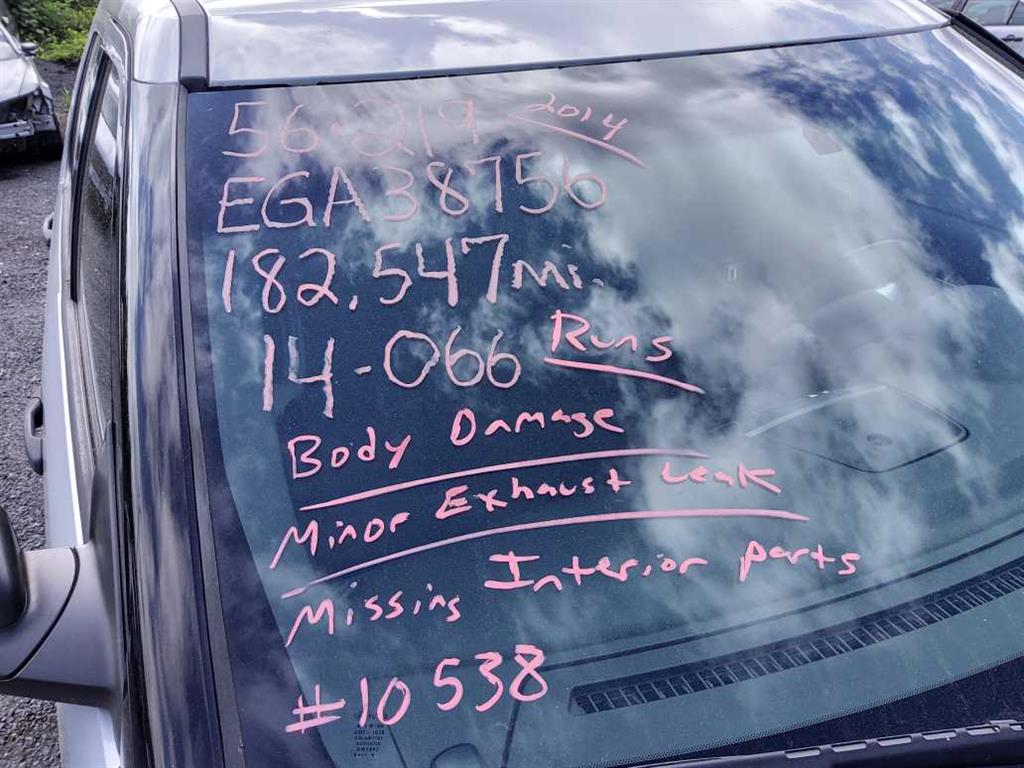 56-219 2014
EGA38756
182,547 mi.
14-066 Runs
Body Damage
Minor Exhaust Leak
Missing Interior parts
#10538